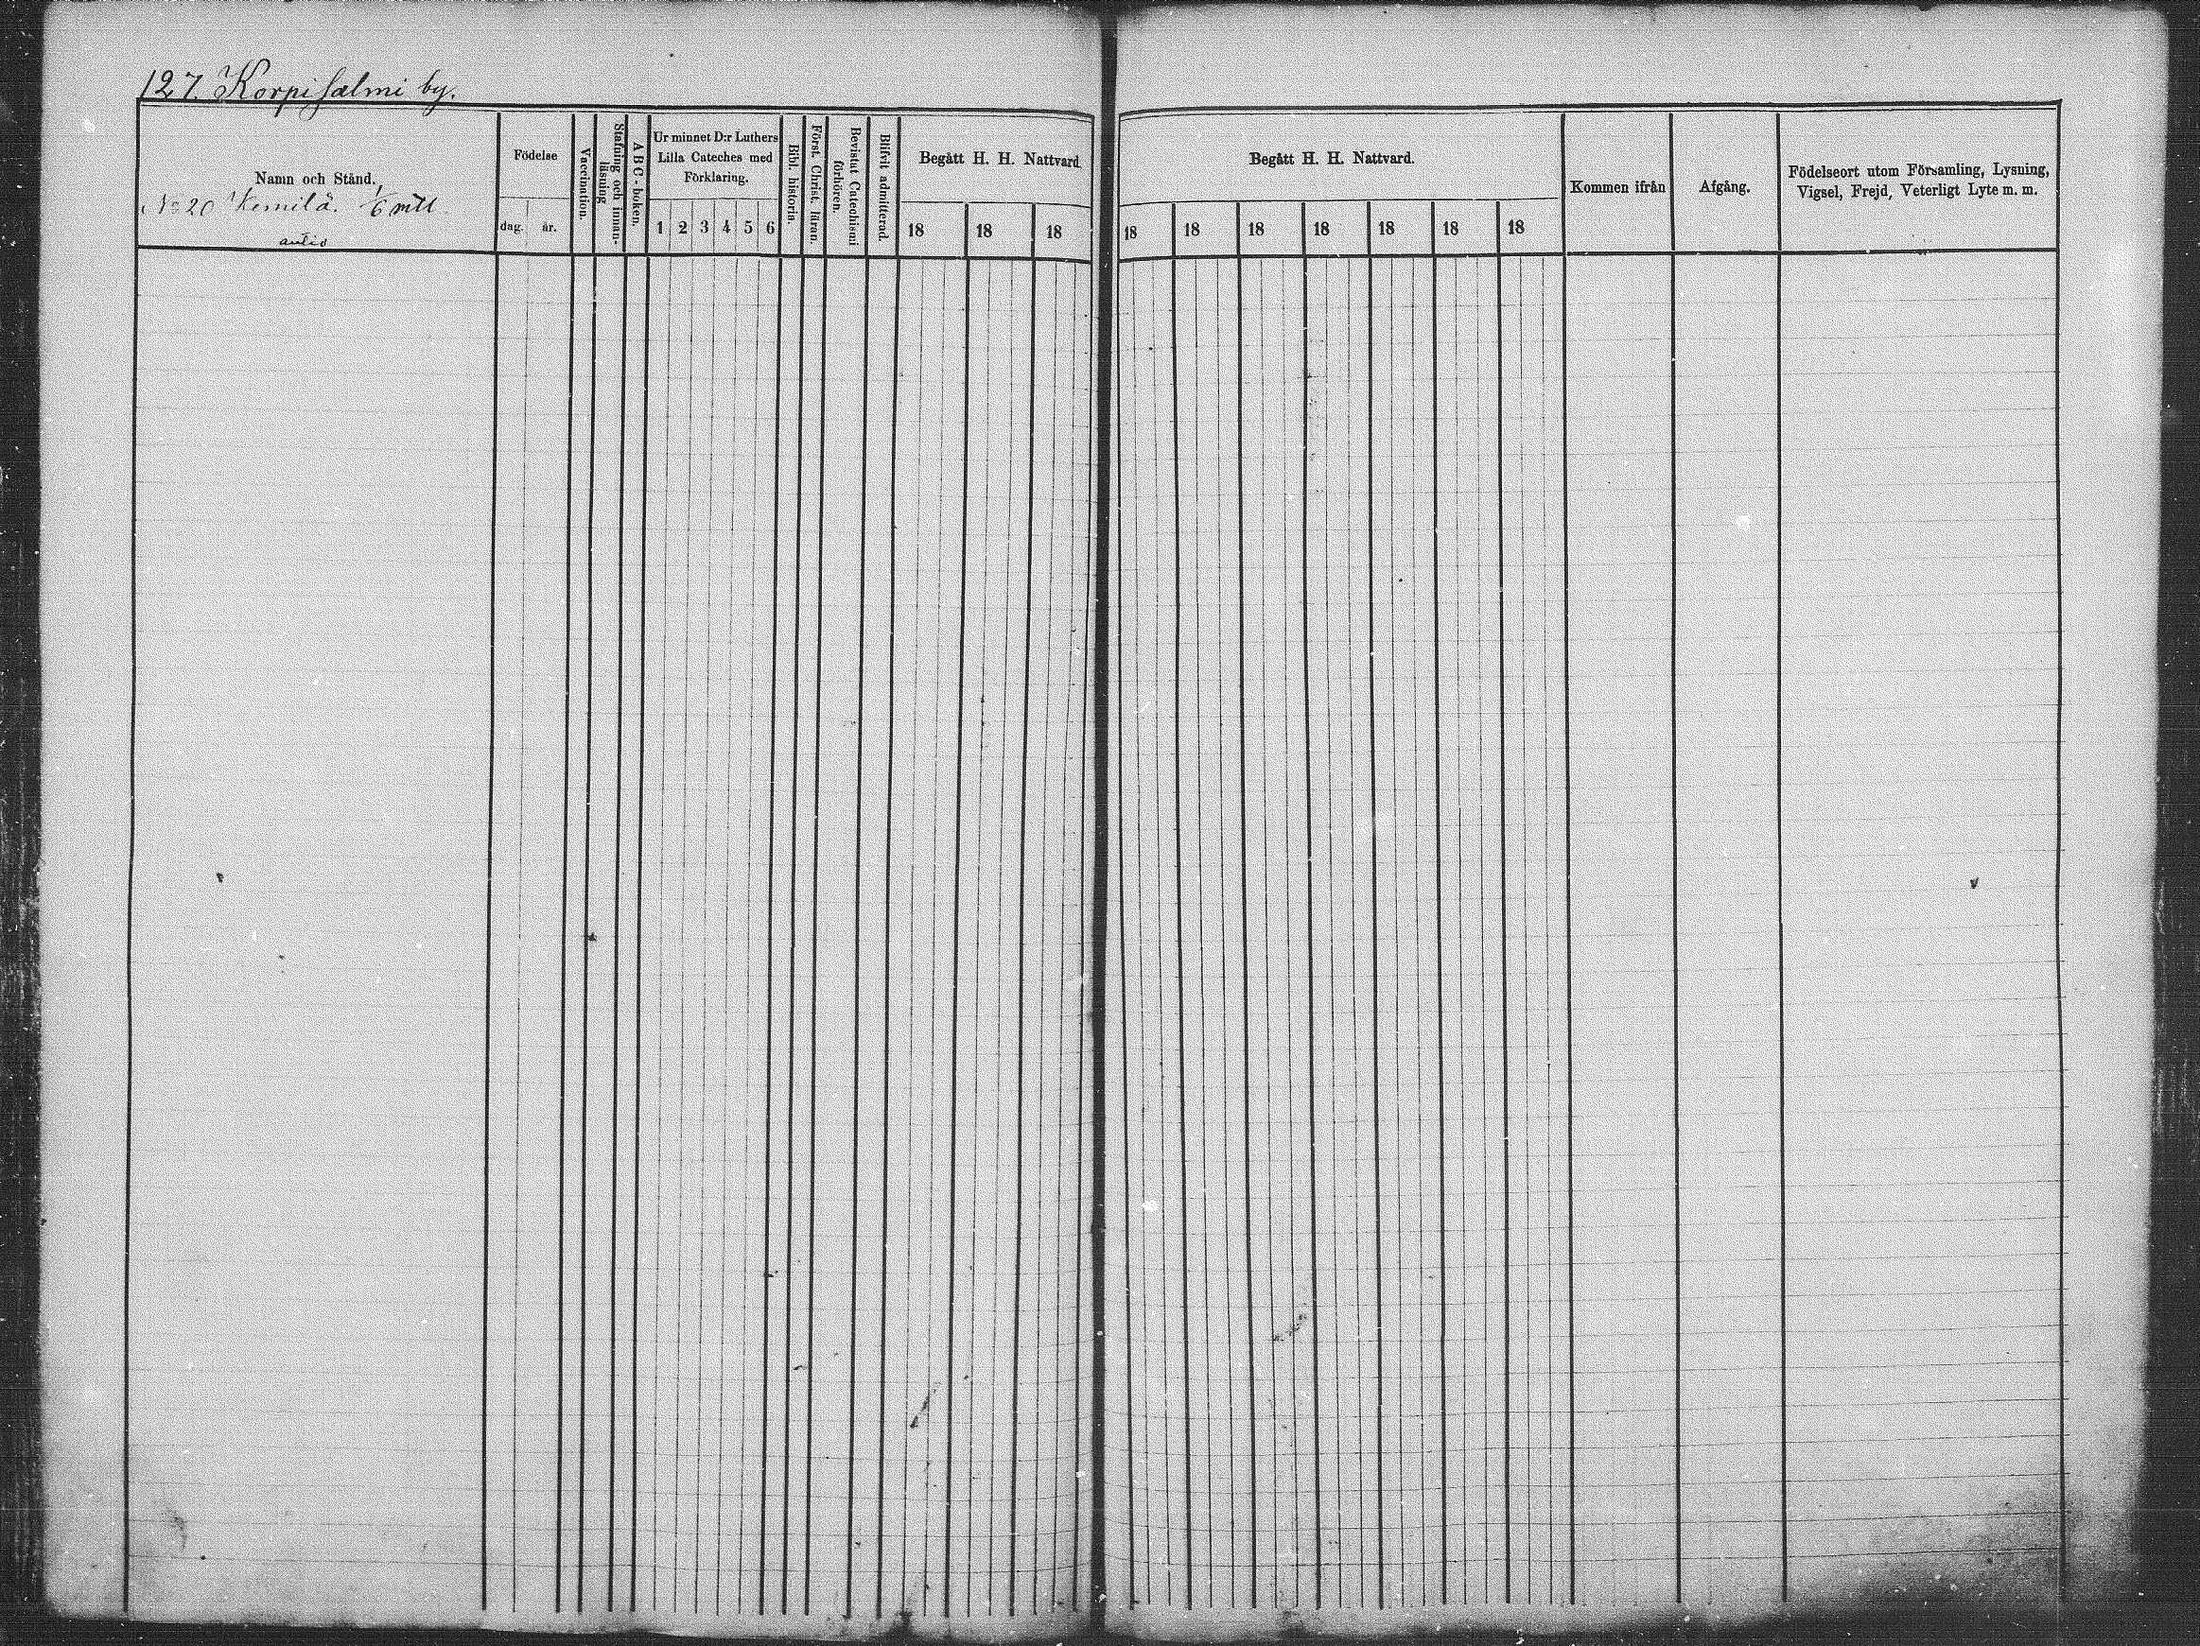 127. Korpisalmi by.
Namn och Stånd.
No 20 Kemilä. 1/6 mtl.
autio
Födelse
dag. år.
Vaccination.
Stafning och innan-
läsning
A B C - boken.
Ur minnet D:r Luthers
Lilla Cateches med
Förklaring.
1 2 3 4 5 6
Bibl. historia.
Först. Christ. läran.
Bevistat Catechismi
förhören.
Blifvit admitterad.
Begått H. H. Nattvard.
18 18 18
Begått H. H. Nattvard.
18 18 18 18 18 18 18
Kommen ifrån
Afgång.
Födelseort utom Församling, Lysning,
Vigsel, Frejd, Veterligt Lyte m. m.